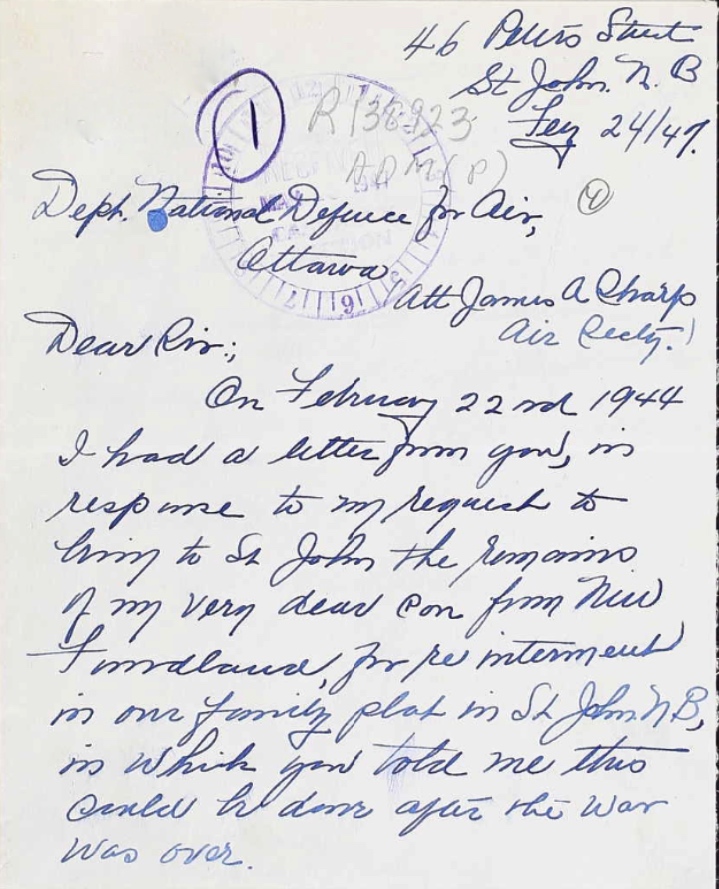 46 Peters Street
St John. N. B
Fey 24/47.
1
R138923
ADM(P)
Dept. National Defence for Air,
Ottawa
Att James A Sharp
Air Secty.
Dear Sir:;
On February 22nd 1944
I had a letter from you, in
response to my request to
bring to St John the remains
of my very dear son from New
Foundland, for re interment
in our family plot in St John N B,
in which you told me this
could be done after the war
was over.